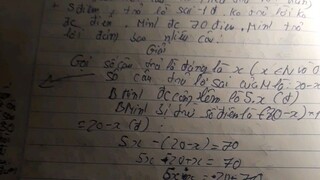 5 điểm, trả lời sai -1đ. Ko trả lời ko
đc điểm. Minh đc 70 điểm. Minh trả
lời đúng bao nhiêu câu?
Giải
Gọi số câu trả lời đúng là x (x ∈ N
Số câu trả lời sai của M là: 20-x
B Minh đc cộng thêm là 5.x (đ)
B Minh bị trừ số điểm là (20-x).1
= 20-x (đ):
5x - (20-x) = 70
5x - 20+x = 70